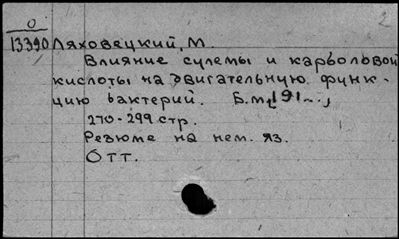 2
О
13390 Ляховецкий, М.
Влияние сулемы и карболовой
кислоты на двигательную функ-
цию бактерий. Б.м., 191...,
270-299 стр.
Резюме на нем. яз.
Отт.